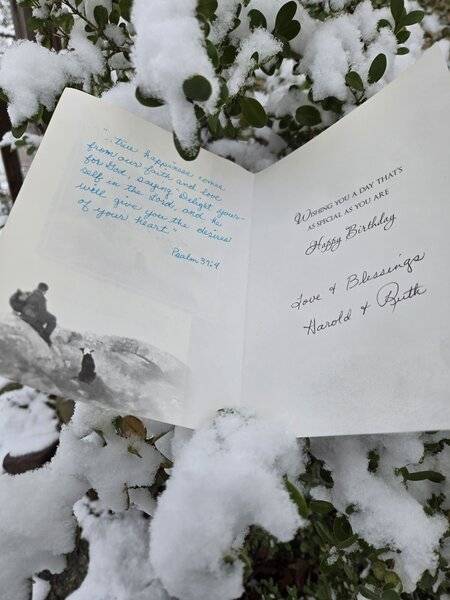 "True happiness comes
from our faith and love
for God, saying Delight your-
self in the Lord, and he
will give you the desires
of your heart."
Psalm 37:4
WISHING YOU A DAY THAT'S
AS SPECIAL AS YOU ARE
Happy Birthday
Love & Blessings
Harold & Ruth